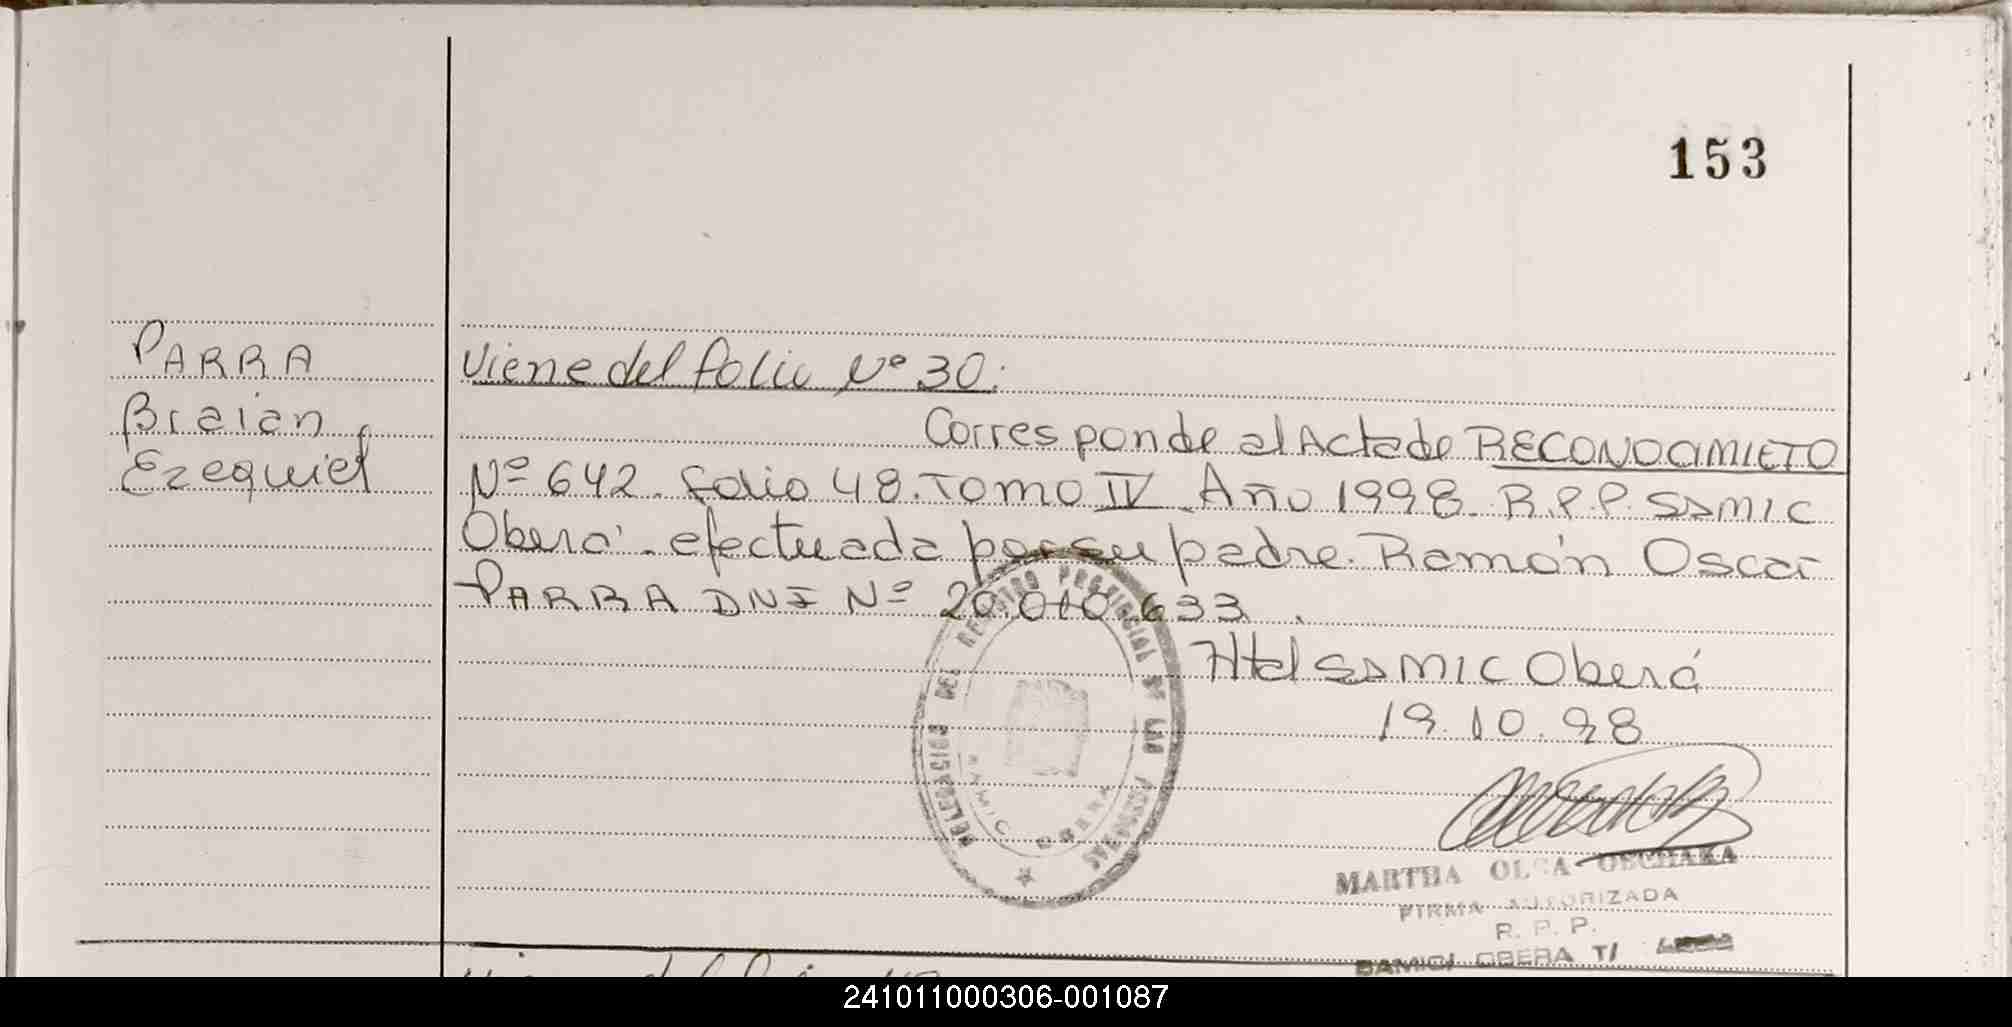 153
PARRA
Braian
Ezequiel
Viene del folio Nº 30.
Corresponde al Acta de RECONOCIMIETO
Nº 642. Folio 48. Tomo IV. Año 1998. R.P.P. SAMIC
Oberá. efectuada por su padre. Ramón Oscar
PARRA DNI Nº 20.010.633.
Htal SAMIC Oberá
19.10.98
DELEGACION DEL REGISTRO PROVINCIAL DE LAS PERSONAS
SAMIC OBERA
MARTHA OLGA
FIRMA AUTORIZADA
R. P. P.
SAMIC/ OBERA T/
241011000306-001087